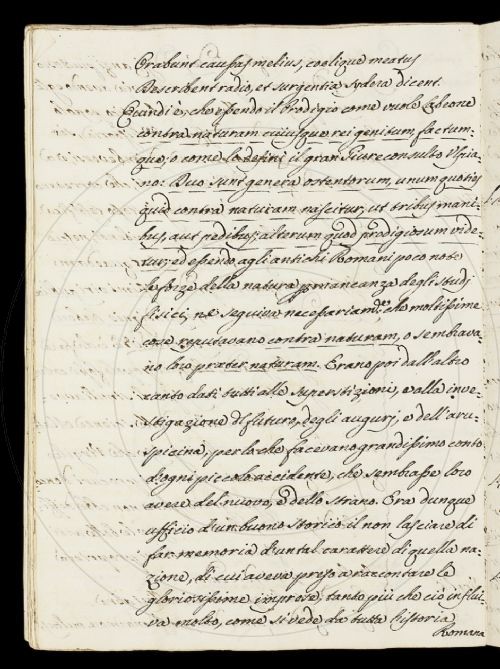 Orabunt caussas melius, coelique meatus
Describent radio, et surgentia sydera dicent.
E quindi è, che essendo il Prodigio come vuole Labeone
contra naturam cuiusque rei genitum, factum-
que, o come lo definì il gran Giureconsulto Ulpia-
no: Duo sunt genera ostentorum, unum quoties
quid contra naturam nascitur, ut tribus mani-
bus, aut pedibus; alterum quod prodigiorum vide-
tur; ed essendo agli antichi Romani poco note
le forze della natura per mancanza degli studj
fisici, ne seguiva necessariam.te che moltissime
cose reputavano contra naturam, o sembrava-
no loro præter naturam. Erano poi dall'altro
canto dati tutti alle superstizioni, e alla inve-
stigazione del futuro, degli augurj, e dell'aru-
spicina, per lo che facevano grandissimo conto
d'ogni piccolo accidente, che sembrasse loro
avere del nuovo, e dello strano. Era dunque
ufficio d'un buono Storico il non lasciare di
far memoria d'un tal carattere di quella na-
zione, di cui aveva preso a raccontare le
gloriosissime imprese, tanto più che ciò influi-
va molto, come si vede da tutta l'historia
Romana